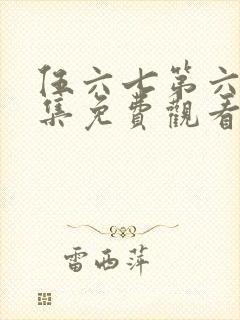 伍六七第六
集免費觀看
雷西萍